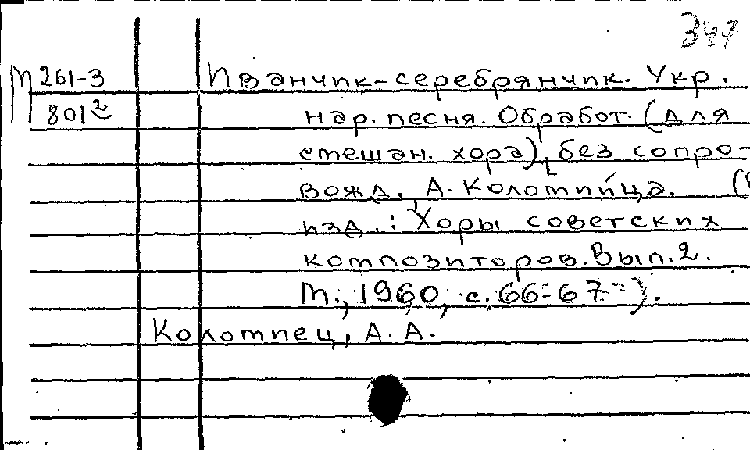 347
М 261-3
801²
Иванчик-серебрянчик. Укр.
нар. песня. Обработ. (для
смешан. хора), без сопро-
вожд. А. Коломийца. (В
изд.: Хоры советских
композиторов. Вып. 2.
М., 1960, с. 66-67).
Коломиец, А. А.